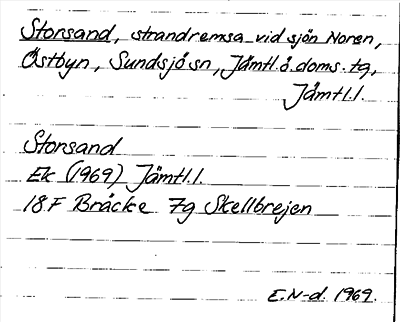 Storsand, strandremsa vid sjön Noren,
Östbyn, Sundsjö sn, Jämtl. ö. doms. tg,
Jämtl.l.
Storsand
Ek (1969) Jämtl.l.
18F Bräcke 7g Skellbrejen
E.N-d. 1969.